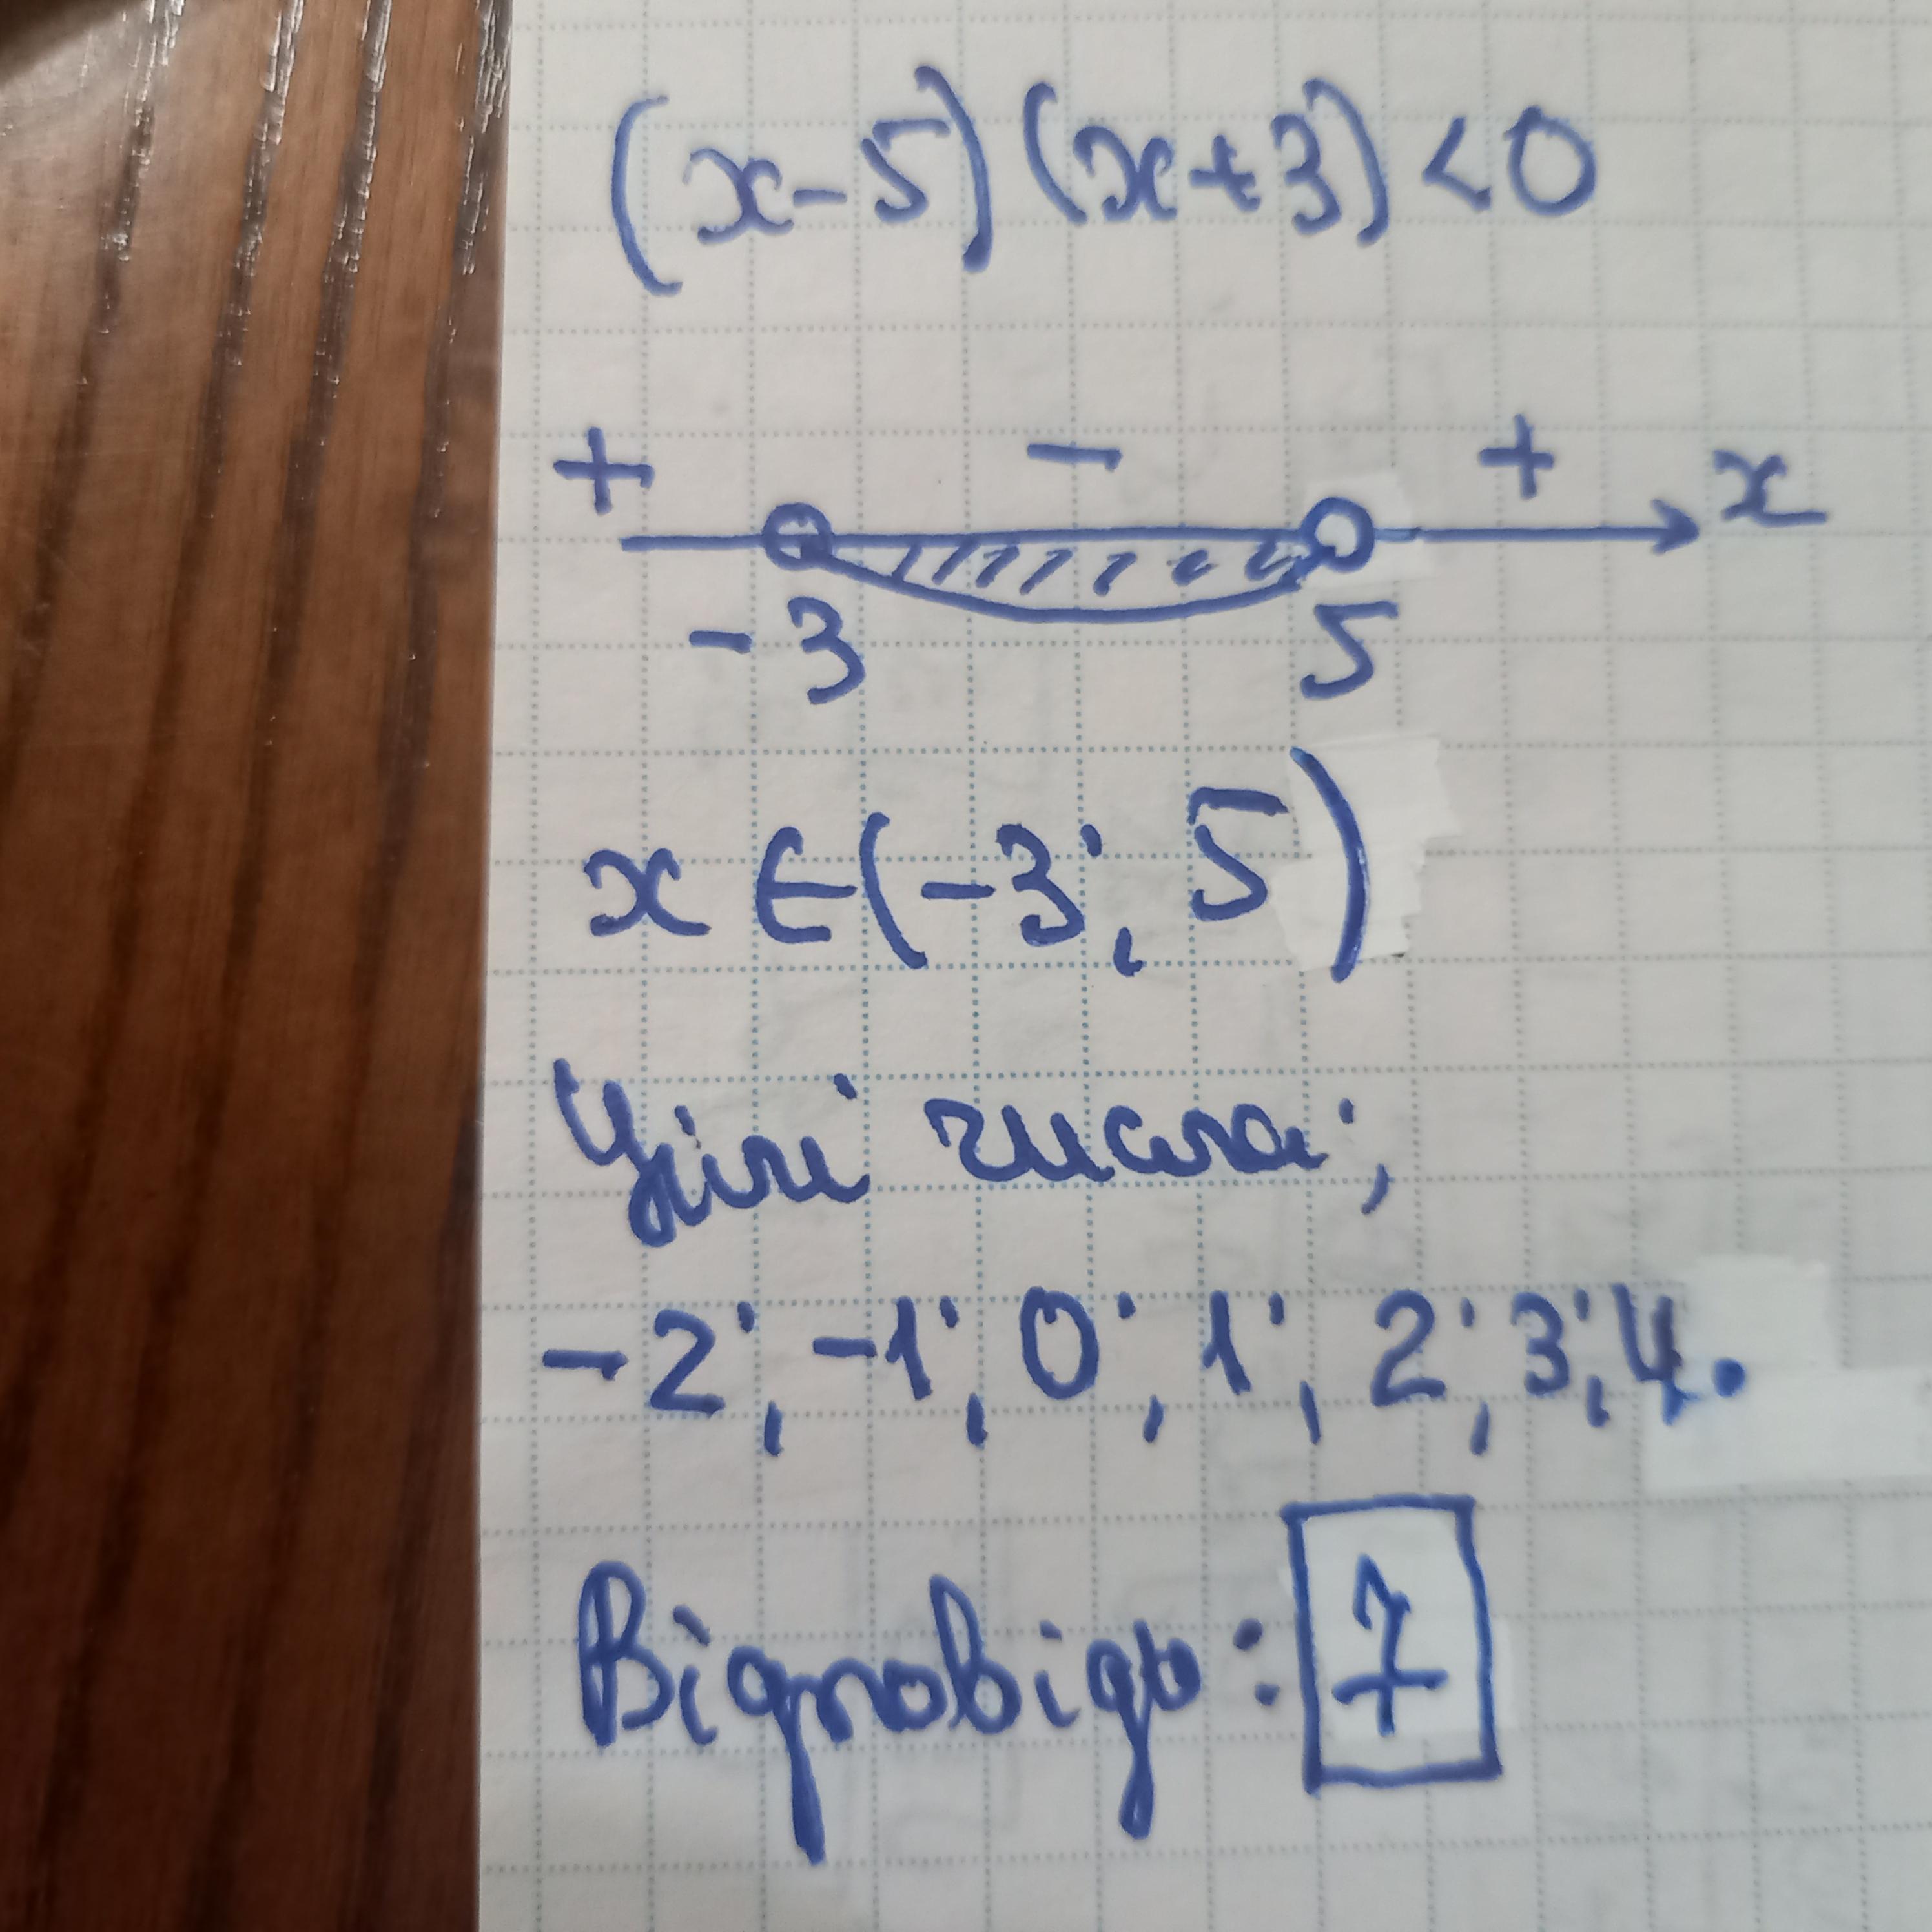 (x-5)(x+3)<0
+ - + x
-3 5
x∈(-3; 5)
Цілі числа:
-2; -1; 0; 1; 2; 3; 4.
Відповідь: 7